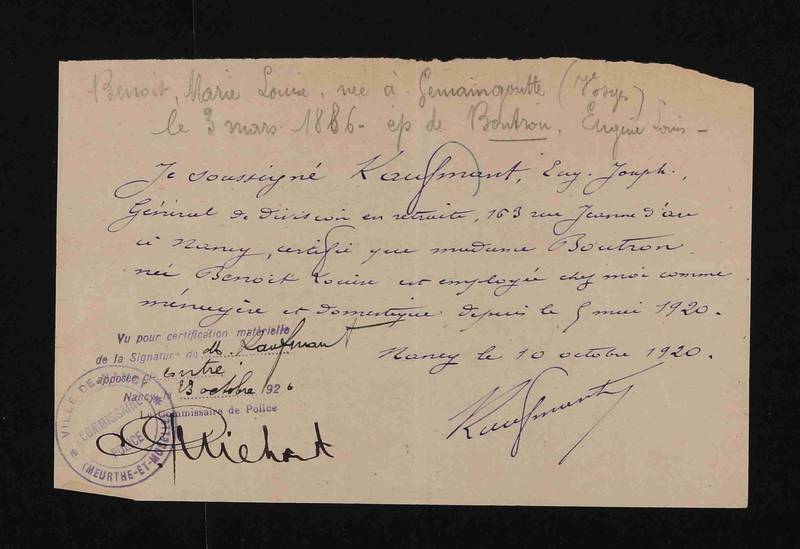 Benoit, Marie Louise, née à Gemaingoutte (Vosges)
le 3 mars 1886 - ep de Boutron, Eugène Louis -
Je soussigné Kaufmant, Eug. Joseph.,
Général de division en retraite, 163 rue Jeanne d'arc
à Nancy, certifie que madame Boutron
née Benoit Louise est employée chez moi comme
ménagère et domestique depuis le 5 mai 1920.
Nancy le 10 octobre 1920.
Kaufmant
Vu pour certification matérielle
de la Signature de M. Kaufmant
apposée ci-contre
Nancy, le 23 octobre 1920
Le Commissaire de Police
VILLE DE NANCY
COMMISSAIRE
POLICE
(MEURTHE-ET-MOSELLE)